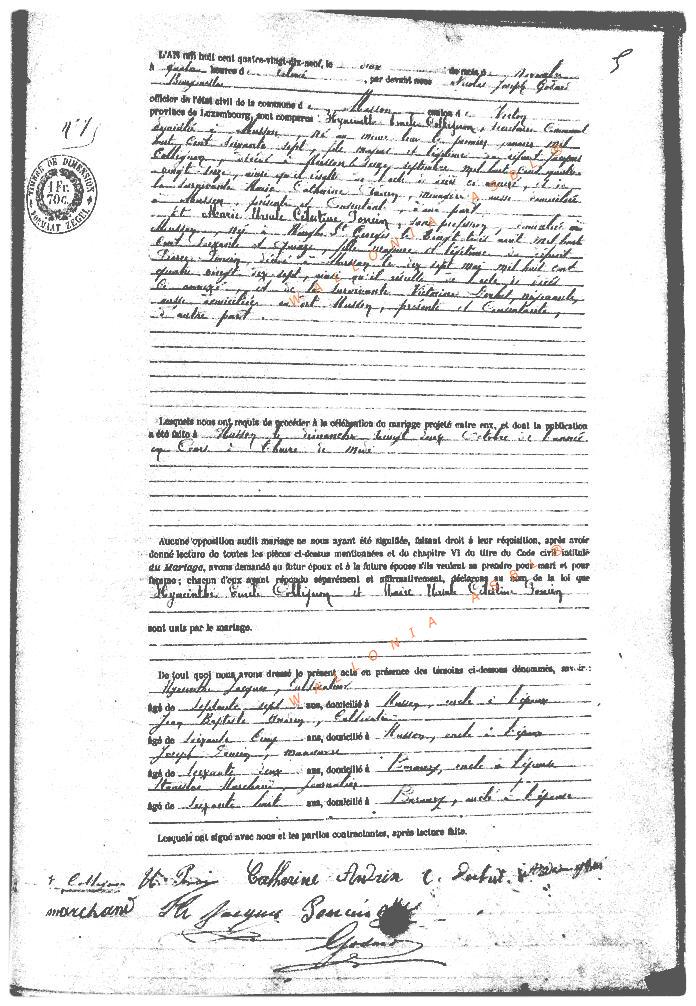 5
L'AN mil huit cent quatre-vingt-dix-neuf, le deux du mois de Novembre
à quatre heures de relevé, par devant nous Nicolas Joseph Godard
Bourgmestre
officier de l'état civil de la commune de Musson canton de Virton
province de Luxembourg, sont comparus Hyacinthe Emile Collignon, Secrétaire Communal
domicilié à Musson, né au même lieu le premier janvier mil
huit Cent Soixante sept, fils majeur et légitime de défunt Jacques
Collignon, décédé à Musson le seize septembre mil huit Cent quatre
vingt seize, ainsi qu'il résulte de l'acte de décès ci annexé, et de
la Survivante Marie Catherine, ménagère aussi domiciliée
à Musson, présente et Consentante, d'une part.
Et Marie Ursule Célestine Poncin, sans profession, domiciliée à
Musson, née à le vingt trois avril mil huit
Cent Soixante et Onze, fille majeure et légitime de défunt
Pierre Poncin, décédé à Musson le dix sept mai mil huit cent
quatre vingt dix sept, ainsi qu'il résulte de l'acte de décès
Ci annexé, et de la Survivante Victorine
aussi domiciliée au dit Musson, présente et Consentante,
d'autre part.
N° 7
TIMBRE DE DIMENSION
1 Fr.
70c.
Lesquels nous ont requis de procéder à la célébration du mariage projeté entre eux, et dont la publication
a été faite à Musson le dimanche vingt deux Octobre de l'année
en Cours à l'heure de midi
Aucune opposition audit mariage ne nous ayant été signifiée, faisant droit à leur réquisition, après avoir
donné lecture de toutes les pièces ci-dessus mentionnées et du chapitre VI du titre du Code civil intitulé
du Mariage, avons demandé au futur époux et à la future épouse s'ils veulent se prendre pour mari et pour
femme ; chacun d'eux ayant répondu séparément et affirmativement, déclarons au nom de la loi que
Hyacinthe Emile Collignon et Marie Ursule Célestine Poncin
sont unis par le mariage.
De tout quoi nous avons dressé le présent acte en présence des témoins ci-dessous dénommés, savoir :
Hyacinthe Jacques, Cultivateur
âgé de Septante sept ans, domicilié à Musson, oncle à l'époux
Jean Baptiste, Cultivateur
âgé de Soixante Cinq ans, domicilié à Musson, oncle à l'époux
Joseph Poncin, manœuvre
âgé de Soixante deux ans, domicilié à, oncle à l'épouse
Stanislas Marchand, journalier
âgé de Soixante huit ans, domicilié à, oncle à l'épouse
Lesquels ont signé avec nous et les parties contractantes, après lecture faite.
Collignon U. Poncin Catherine Andrin
marchand H Jacques Poncin
Godard
WALONIA ASBL ©
WALONIA ASBL ©